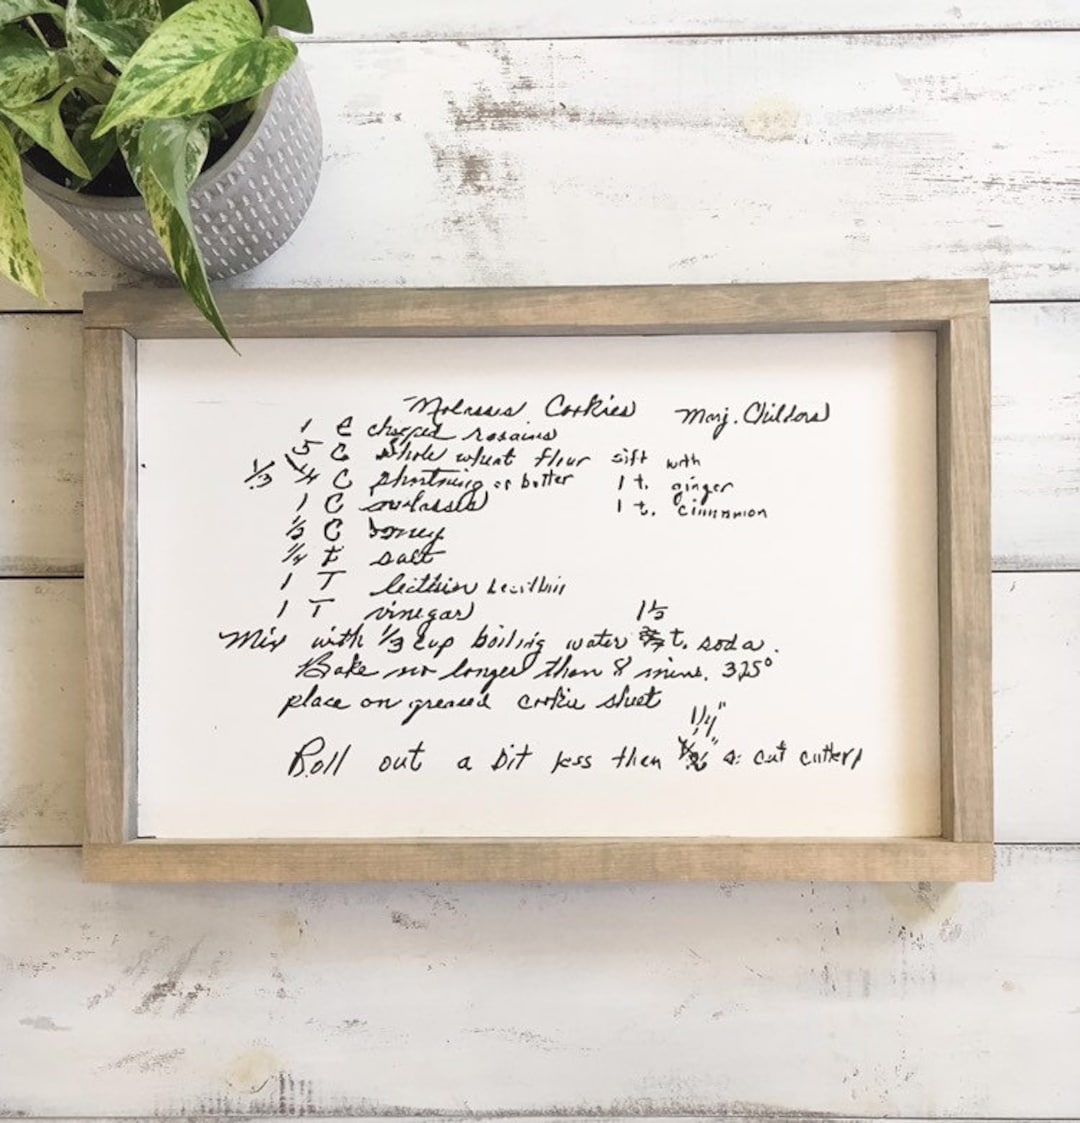 Molasses Cookies Marj. Childers
1 C chopped rasains
5 C whole wheat flour sift with
1/3 1/4 C shortning or butter 1 t. ginger
1 C molasses 1 t. cinnamon
1/2 C honey
1/4 t salt
1 T Lecithin
1 T vinegar 1 1/2
Mix with 1/3 cup boiling water t. soda.
Bake no longer than 8 mins. 325°
place on greased cookie sheet
1/4"
Roll out a bit less then cut